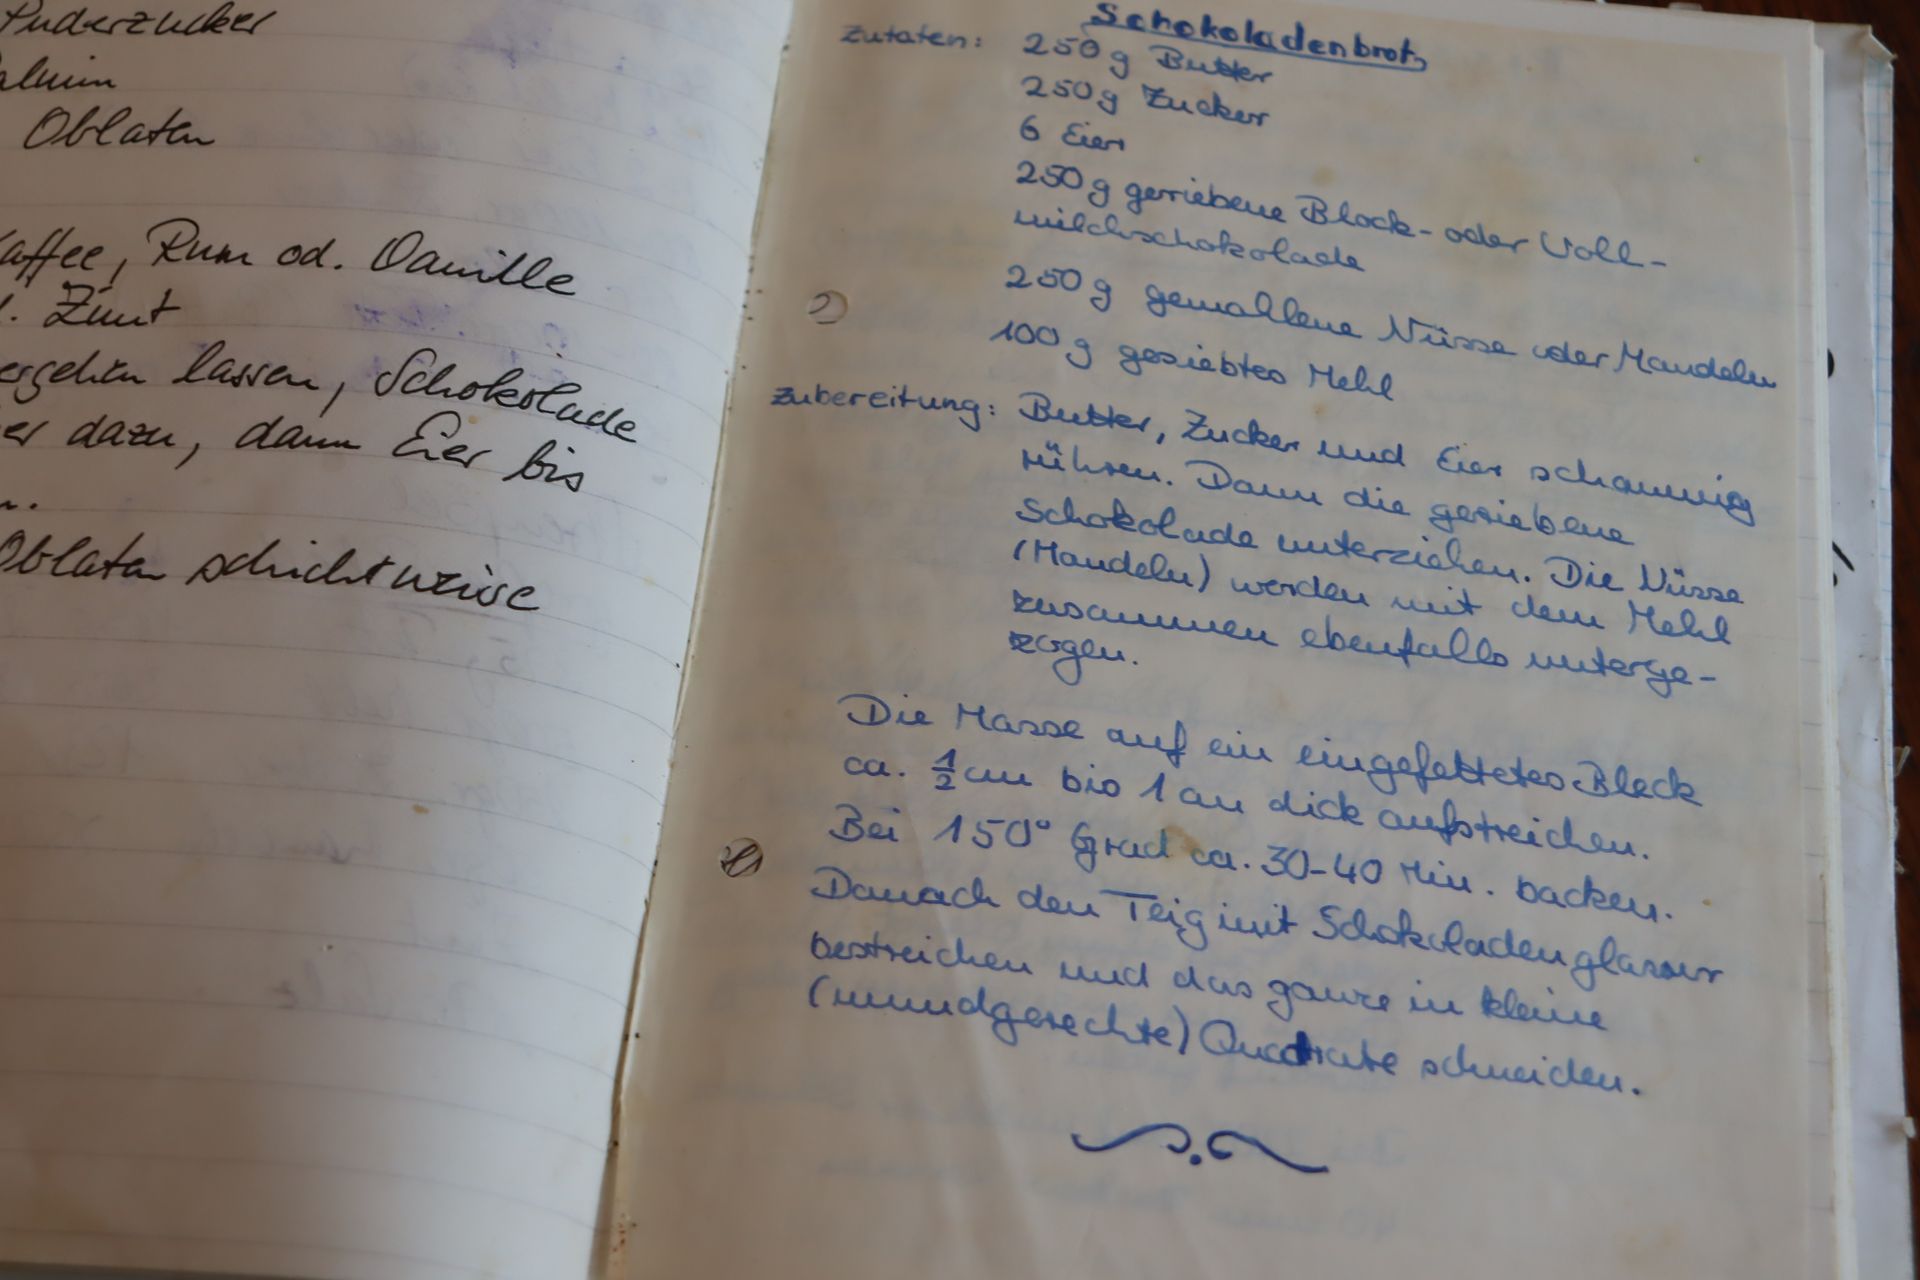 Puderzucker
Oblaten
Kaffee, Rum od. Vanille
Zimt
ergehen lassen, Schokolade
er dazu, dann Eier bis
Oblaten schichtweise
Schokoladenbrot
Zutaten: 250 g Butter
250 g Zucker
6 Eier
250 g geriebene Block- oder Voll-
milchschokolade
250 g gemahlene Nüsse oder Mandeln
100 g gesiebtes Mehl
Zubereitung: Butter, Zucker und Eier schaumig
rühren. Dann die geriebene
Schokolade unterziehen. Die Nüsse
(Mandeln) werden mit dem Mehl
zusammen ebenfalls unterge-
zogen.
Die Masse auf ein eingefettetes Blech
ca. 1/2 cm bis 1 cm dick aufstreichen.
Bei 150° Grad ca. 30-40 Min. backen.
Danach den Teig mit Schokoladenglasur
bestreichen und das ganze in kleine
(mundgerechte) Quadrate schneiden.